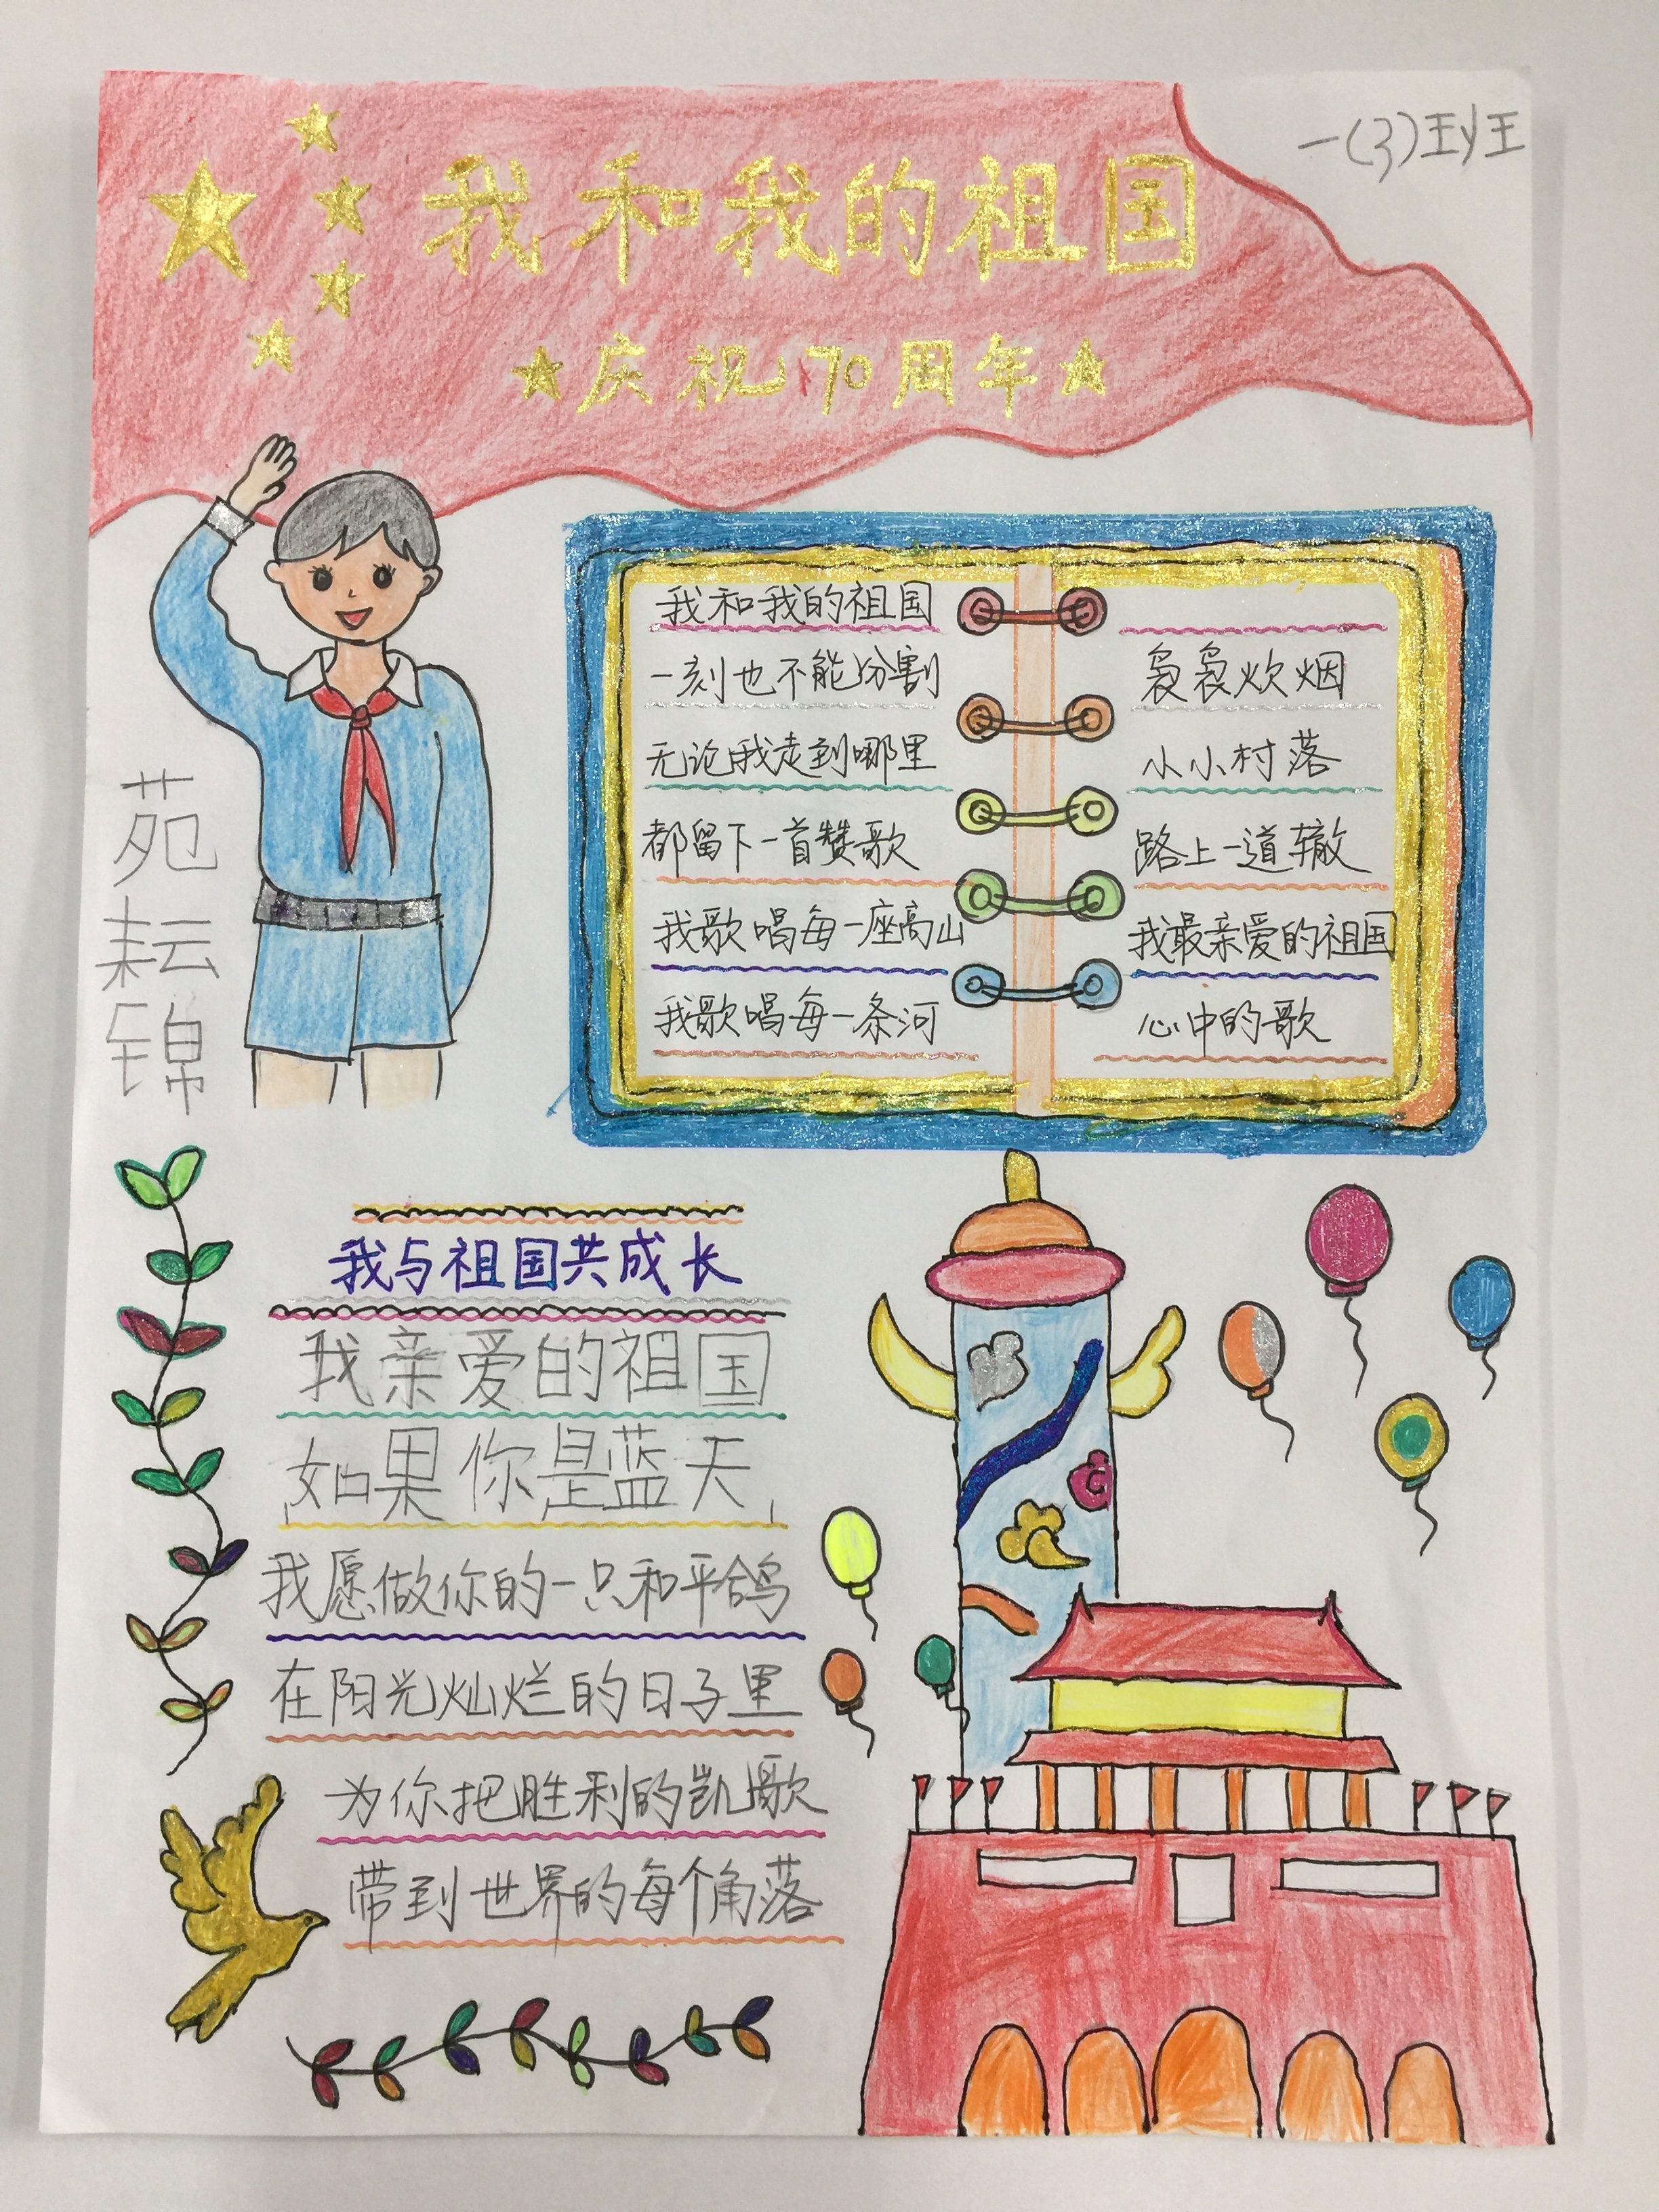 一(3)班
我和我的祖国
庆祝70周年
苑耘锦
我和我的祖国
一刻也不能分割
无论我走到哪里
都留下一首赞歌
我歌唱每一座高山
我歌唱每一条河
袅袅炊烟
小小村落
路上一道辙
我最亲爱的祖国
心中的歌
我与祖国共成长
我亲爱的祖国
如果你是蓝天
我愿做你的一只和平鸽
在阳光灿烂的日子里
为你把胜利的凯歌
带到世界的每个角落